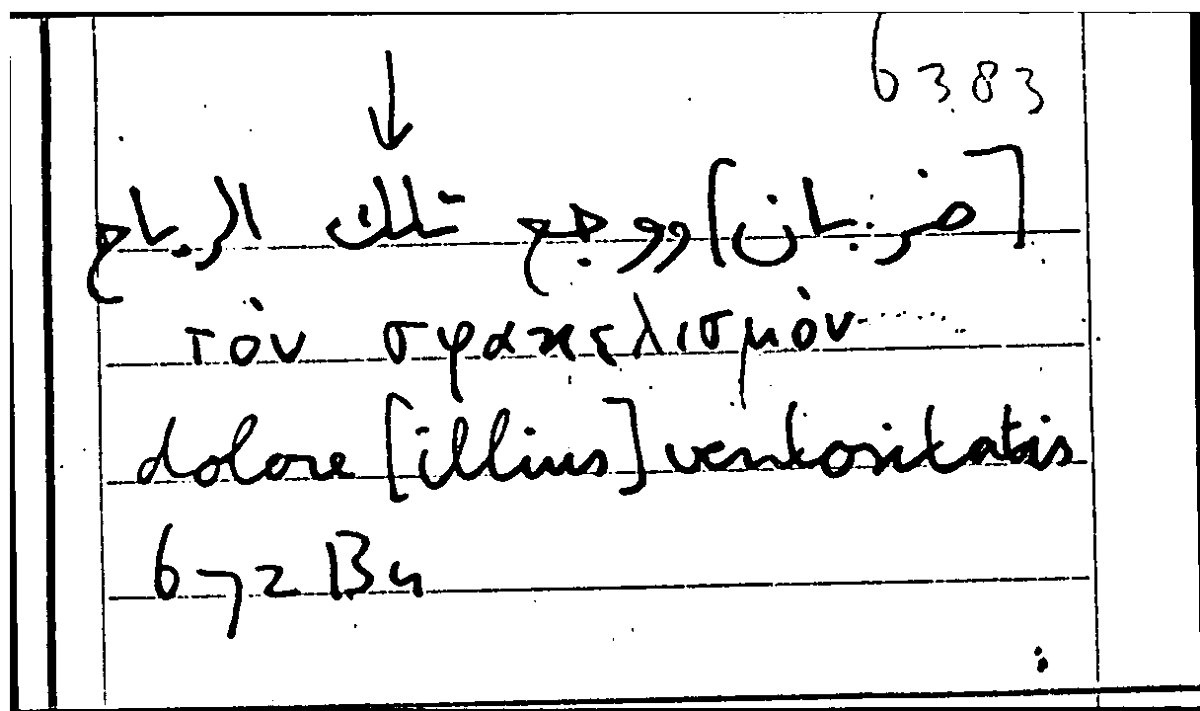 6383
↓
[ضربان] ووجع تلك الرياح
τὸν σφακελισμὸν
dolore [illius] ventositatis
672 B4